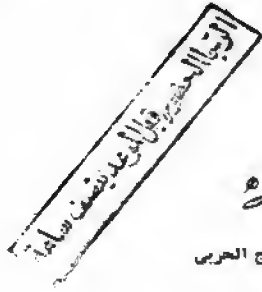 الرجاء الحضور قبل الموعد بنصف ساعة
ج الحربي